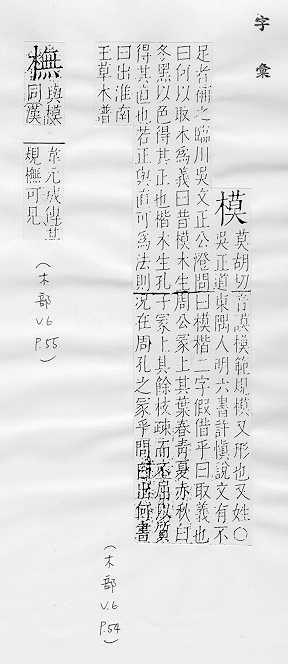 字彙
模
莫胡切音謨模範規模又形也又姓○
吳正道東隅人明六書許慎說文有不
足者補之臨川吳文正公澄問曰模楷二字假借乎曰取義也
曰何以取木爲義曰昔模木生周公冢上其葉春青夏赤秋白
冬黑以色得其正也楷木生孔子冢上其餘枝疎而不屈以質
得其直也若正與直可爲法則況在周孔之冢乎問曰出何書
曰出淮南
王草木譜
(木部 V.6 P.54)
橅
與模
同漢
韋元成傳其
規橅可見
(木部 V.6 P.55)